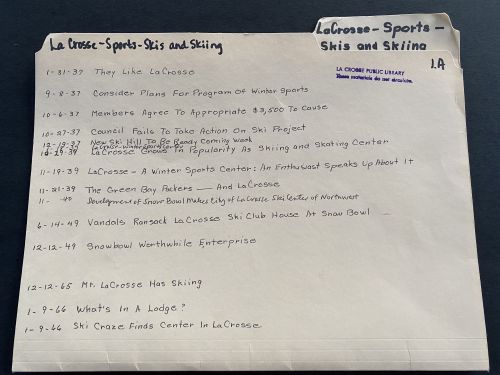 LaCrosse-Sports-
Skis and Skiing
La Crosse-Sports-Skis and Skiing
1A
LA CROSSE PUBLIC LIBRARY
These materials do not circulate.
1-31-37 They Like LaCrosse
9-8-37 Consider Plans For Program Of Winter Sports
10-6-37 Members Agree To Appropriate $3,500 To Cause
10-27-37 Council Fails To Take Action On Ski Project
12-19-37 New Ski Hill To Be Ready Coming Week
LaCrosse Grows In Popularity As Skiing and Skating Center
11-19-39 LaCrosse - A Winter Sports Center: An Enthusiast Speaks Up About It
11-21-39 The Green Bay Packers — And LaCrosse
11- -40 Development of Snow Bowl Makes City of LaCrosse Ski Center of Northwest
6-14-49 Vandals Ransack LaCrosse Ski Club House At Snow Bowl
12-12-49 Snowbowl Worthwhile Enterprise
12-12-65 Mr. LaCrosse Has Skiing
1-9-66 What's In A Lodge?
1-9-66 Ski Craze Finds Center In LaCrosse